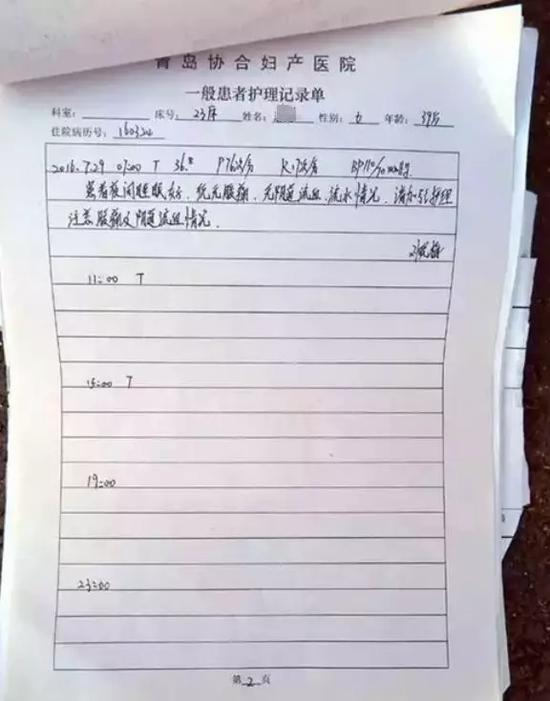 青岛协合妇产医院
一般患者护理记录单
科室： 床号：23床 姓名： 性别：女 年龄：39岁
住院病历号：160324
2016.7.29 07:00 T 36.8 P76次/分 R17次/分 BP110/70mmHg
患者夜间睡眠好，现无腹痛，无阴道流血、流水情况，请加强护理
注意腹痛及阴道流血情况。
11:00 T
15:00 T
19:00
23:00
第2页